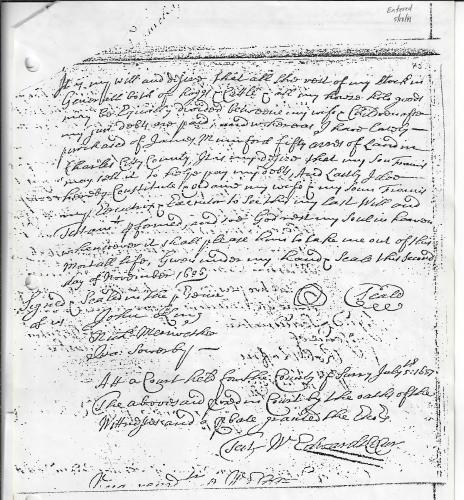 Entered
It is my will and desire that all the rest of my stock in
Generall both of hogs & Cattle & all my house hold goods
may be Equally divided between my wife & Children after
my just debts are paid and whereas I have lately
purchased of James Mumford fifty acres of Land in
Charles City County, It is my desire that my Son Francis
may sell it to help pay my debts, And Lastly I doe
hereby Constitute & ordaine my wife & my Sonn Francis
my Executrix & Executor to See this my last Will and
Testamt pformed, and soe God rest my Soule in heaven
whensoever it shall please him to take me out of this
Mortall life, Given under my hand & Seale this Second
day of November 1686
Signed & Sealed in the Prence
of us John
Nich Meriwether
Sowerby
Seale
At a Court held for the County of Surry July 5 1687
The abovesaid proved in Court by the oaths of the
Witnesses and a pbate granted the Exrs
Test Wm Edwards Clr